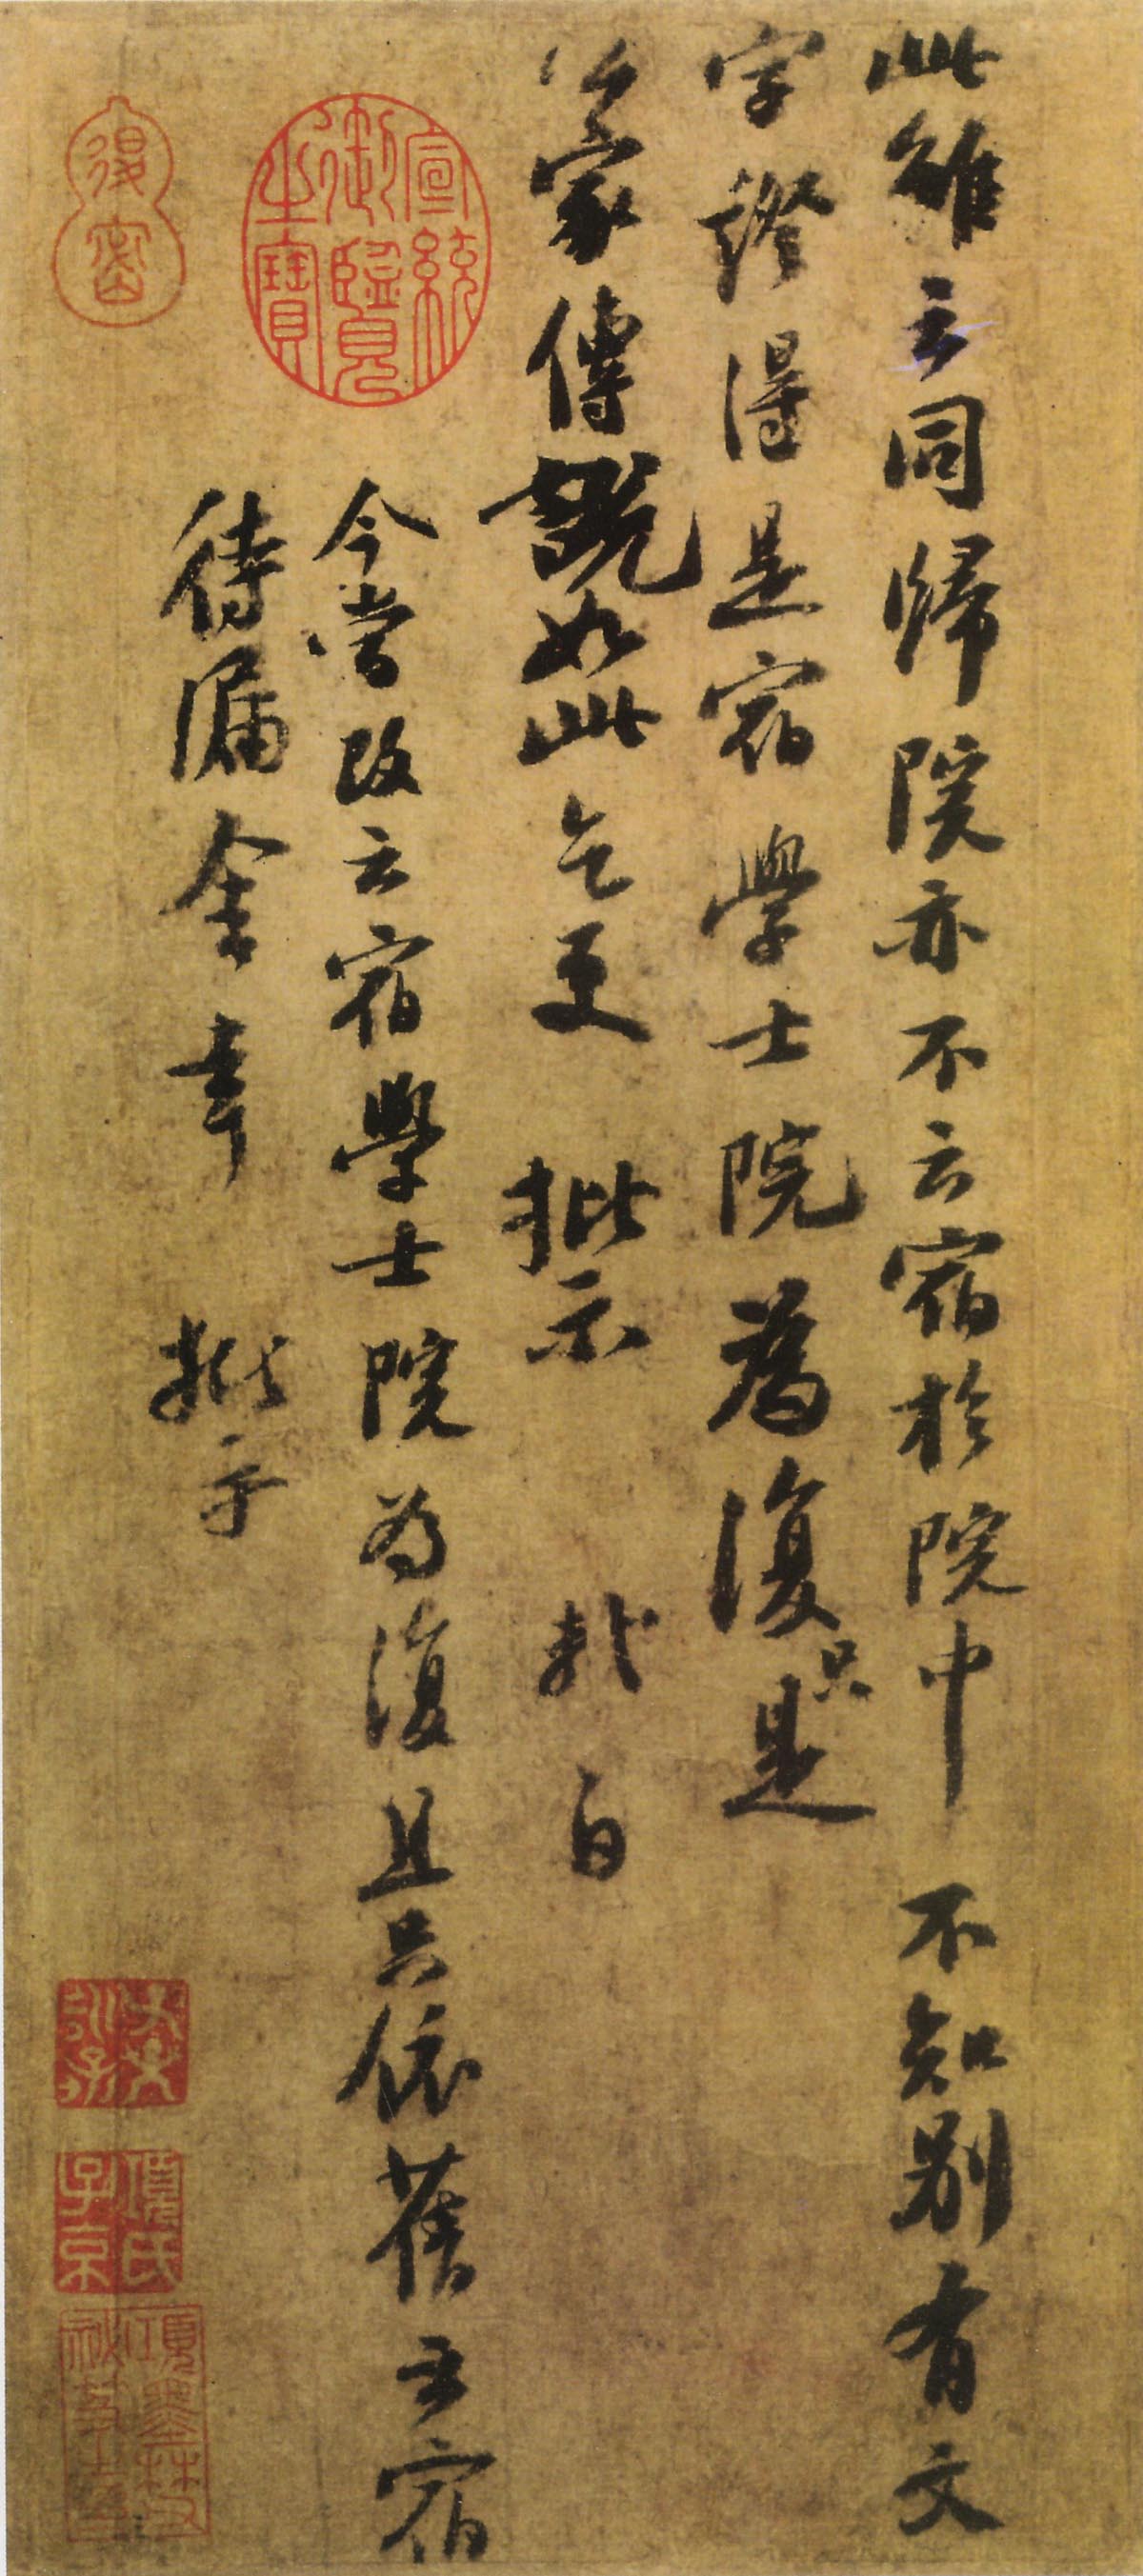 此雖云同歸院亦不云宿於院中 不知別有文
字證得是宿學士院為復只是
公家傳說如此乞更 批示 軾白
今當改云宿學士院為復且只依舊云宿
待漏舍幸 批示
宣統御覽之寶
退密
項氏子京
項墨林父祕笈之印